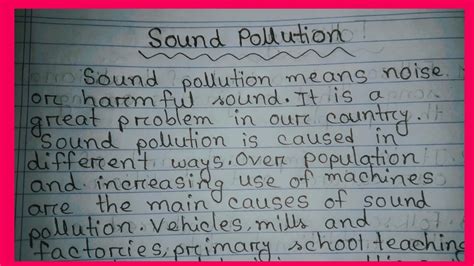 Sound Pollution
Sound pollution means noise
or harmful sound. It is a
great problem in our country.
Sound pollution is caused in
different ways. Over population
and increasing use of machines
are the main causes of sound
pollution. Vehicles, mills and
factories, primary school, teaching